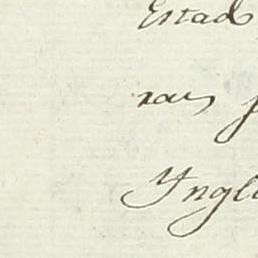 Estad
ras
Yngl